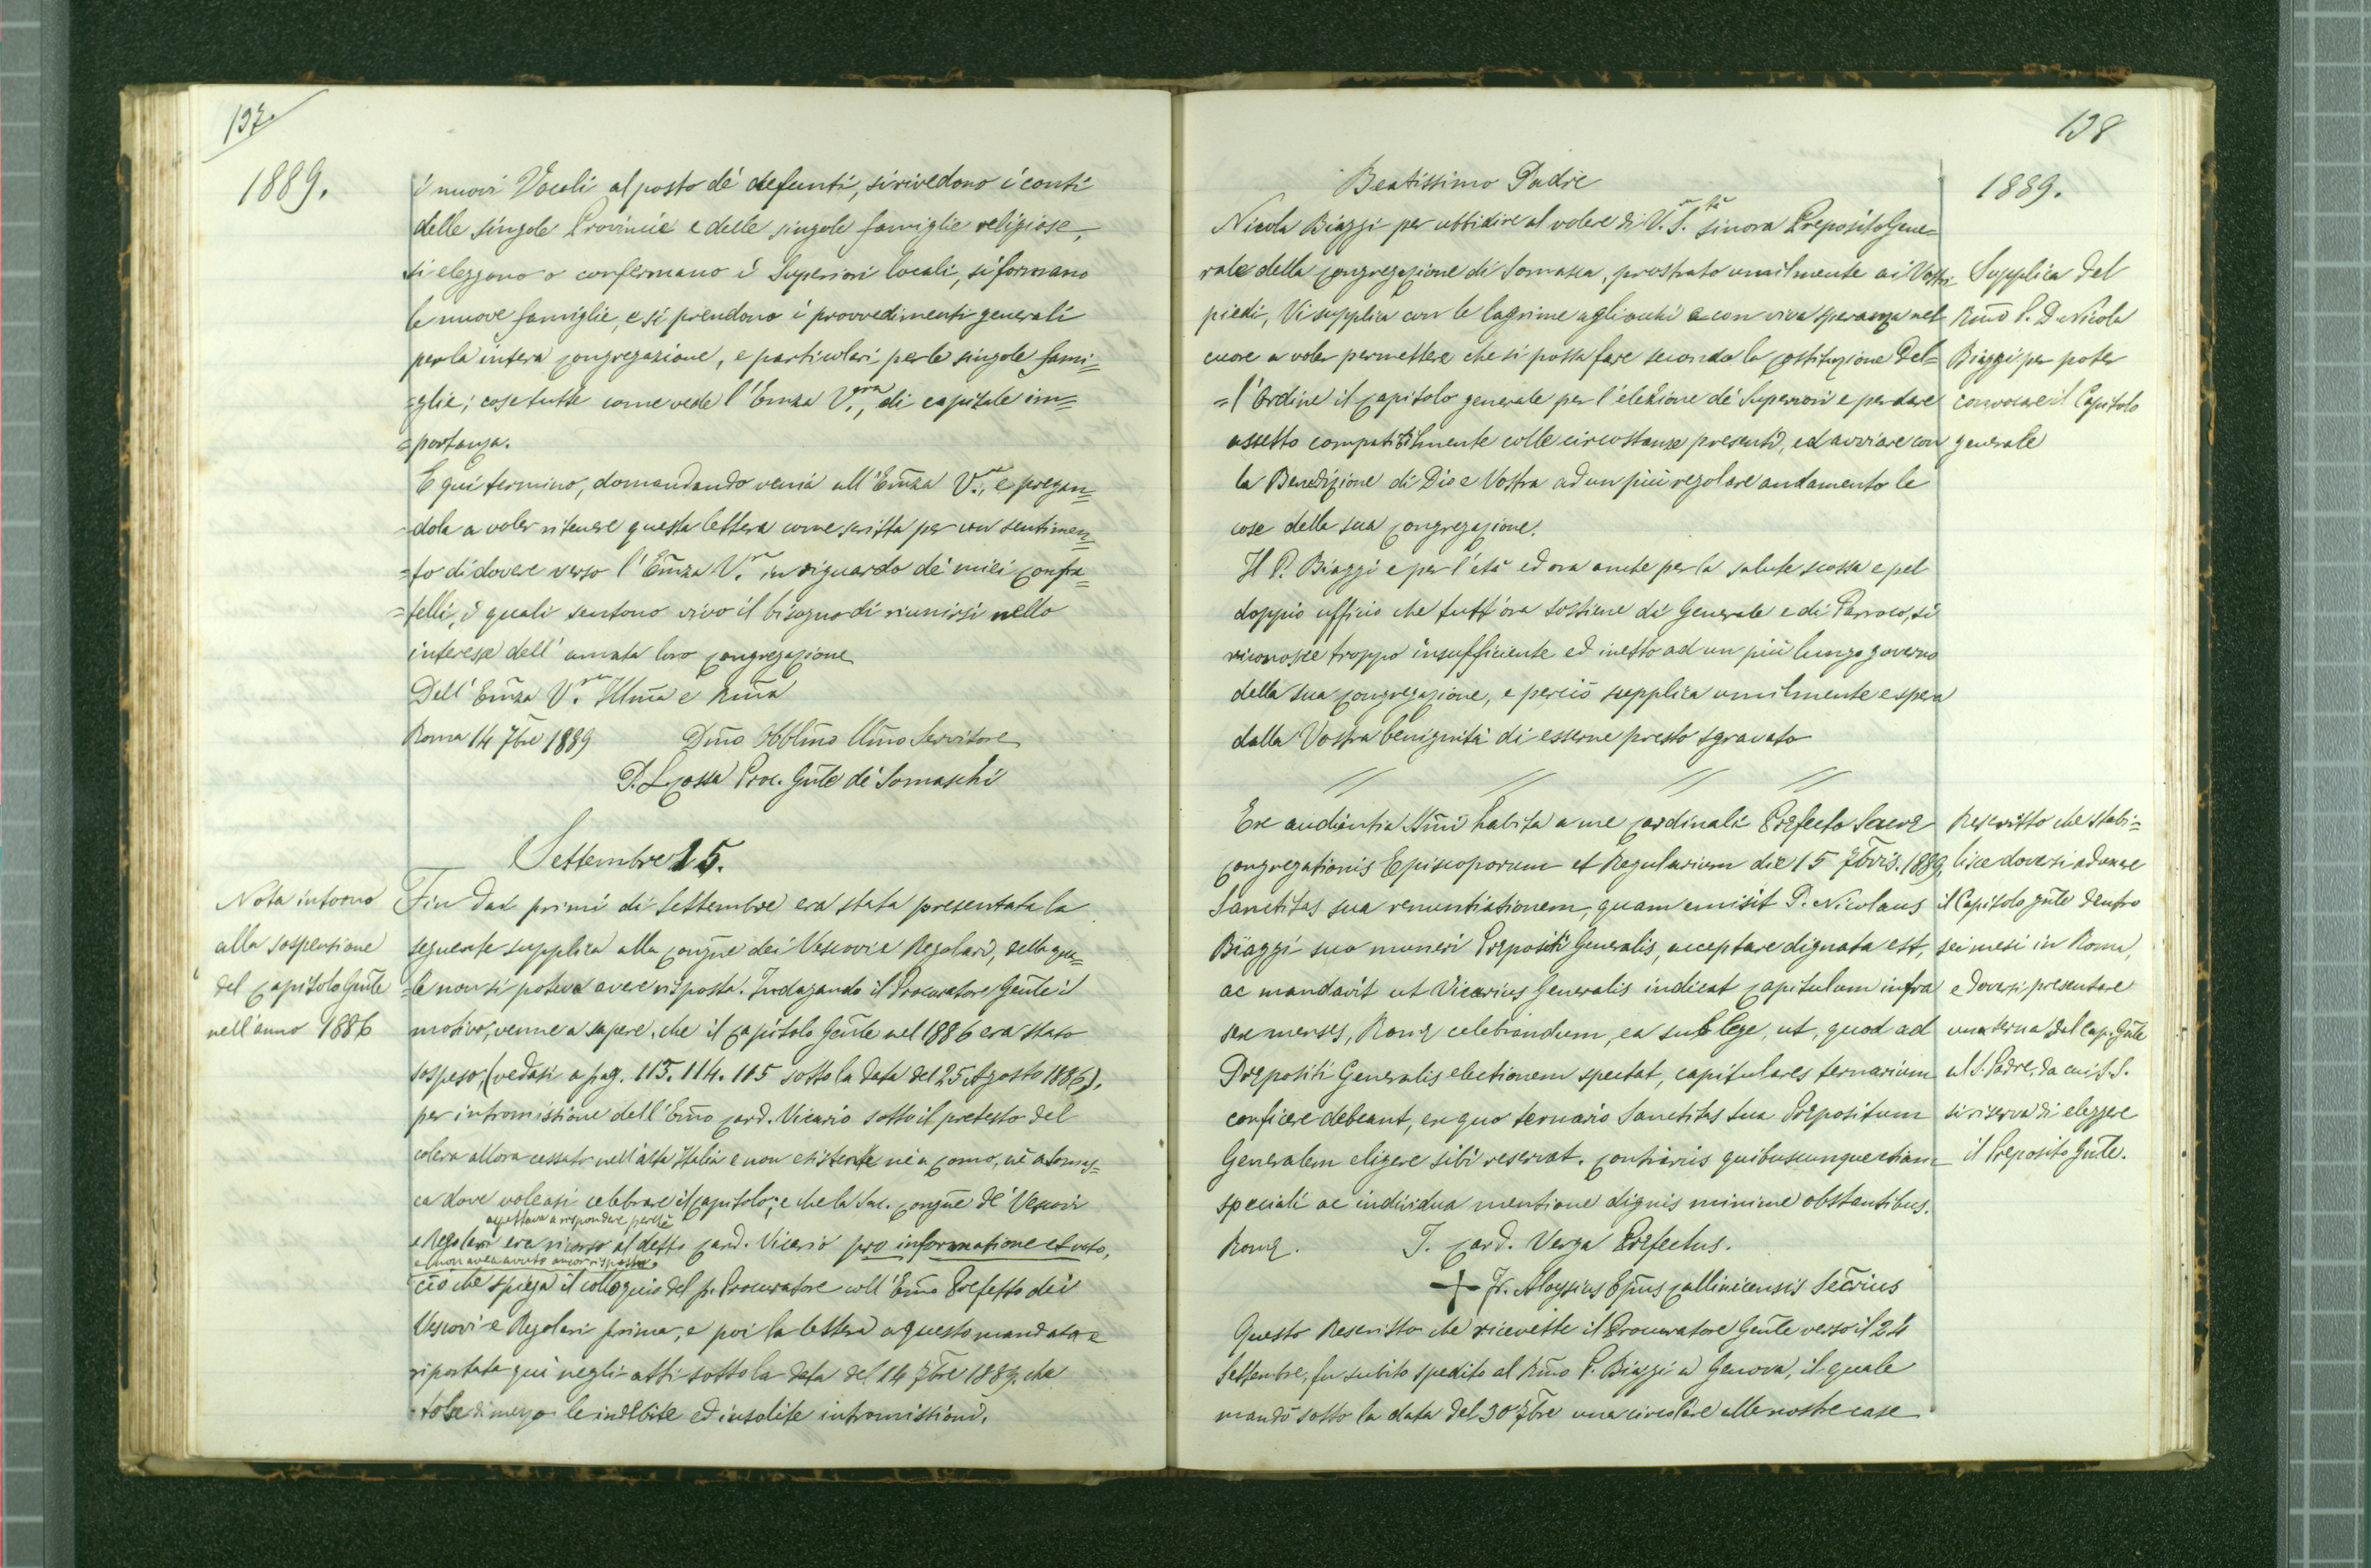 137.
1889.
i nuovi Vocali al posto de' defunti, si rivedono i conti
delle singole Provincie e delle singole famiglie religiose,
si eleggono o confermano i Superiori locali, si formano
le nuove famiglie, e si prendono i provvedimenti generali
per la intera Congregazione, e particolari per le singole fami=
=glie; cose tutte come vede l'Emza V.ra, di capitale im=
=portanza.
E qui termino, domandando venia all'Emza V.ra, e pregan=
=dola a voler ritenere questa lettera come scritta per un sentimen=
=to di dovere verso l'Emza V.ra in riguardo de' miei Confra=
=telli, i quali sentono vivo il bisogno di riunirsi nello
interesse dell'amata loro Congregazione
Dell'Emza V.ra Illma e Rma
Roma 14 7bre 1889 Dmo Obblmo Umo Servitore
D. L. Cossa Proc. Gnle de' Somaschi
Settembre 15.
Nota intorno
alla sospensione
del Capitolo Gnle
nell'anno 1886
Fin dai primi di Settembre era stata presentata la
seguente supplica alla Congne dei Vescovi e Regolari, della qua=
=le non si poteva avere risposta. Indagando il Procuratore Gnle il
motivo, venne a sapere, che il Capitolo Gnle nel 1886 era stato
sospeso, (vedasi a pag. 113. 114. 115 sotto la data del 25 Agosto 1886),
per intromissione dell'Emo Card. Vicario sotto il pretesto del
colera allora cessato nell'alta Italia e non esistente nè a Como, nè a Somas=
ca dove voleasi celebrare il Capitolo; e che la Sac. Congne de' Vescovi
aspettava a rispondere perchè
e Regolari era ricorso al detto Card. Vicario pro informatione et voto,
e non avea avuto ancor risposta.
ciò che spiega il colloquio del p. Procuratore coll'Emo Prefetto dei
Vescovi e Regolari prima, e poi la lettera a questo mandata e
riportata qui negli atti sotto la data del 14 7bre 1889. che
tolse di mezzo le indebite ed insolite intromissioni.
138
1889.
Beatissimo Padre
Nicola Biaggi per ubbidire al volere di V.ra S.tà sinora Preposito Gene=
rale della Congregazione di Somasca, prostrato umilmente ai Vostri
piedi, Vi supplica con le lagrime agli occhi e con viva speranza nel
cuore a voler permettere che si possa fare secondo la Costituzione del=
=l'Ordine il Capitolo generale per l'elezione de' Superiori e per dare
assetto compatibilmente colle circostanze presenti, ed avviare con
la Benedizione di Dio e Vostra ad un più regolare andamento le
cose della sua Congregazione.
Supplica del
Rmo P. D. Nicola
Biaggi per poter
convocare il Capitolo
generale
Il P. Biaggi e per l'età ed ora anche per la salute scossa e pel
doppio ufficio che tutt'ora sostiene di Generale e di Parroco, si
riconosce troppo insufficiente ed inetto ad un più lungo governo
della sua Congregazione, e perciò supplica umilmente e spera
dalla Vostra benignità di esserne presto sgravato
// // // //
Ex audientia SSmi habita a me Cardinali Præfecto Sacræ
Congregationis Episcoporum et Regularium die 15 7bris. 1889,
Sanctitas sua renuntiationem, quam emisit P. Nicolaus
Biaggi suo muneri Præpositi Generalis, acceptare dignata est,
ac mandavit ut Vicarius Generalis indicat Capitulum infra
sex menses, Romæ celebrandum, ea sub lege, ut, quod ad
Præpositi Generalis electionem spectat, capitulares ternarium
conficere debeant, ex quo ternario Sanctitas sua Præpositum
Generalem eligere sibi reservat. Contrariis quibuscumque etiam
speciali ac individua mentione dignis minime obstantibus.
Rescritto che stabi=
lisce doversi adunare
il Capitolo gnle dentro
sei mesi in Roma,
e doversi presentare
una terna dal Cap. Gnle
al S. Padre, da cui S. S.
si riserva di eleggere
il Preposito Gnle.
Romæ. I. Card. Verga Præfectus.
+ Fr. Aloysius Epus Callinicensis Secrius
Questo Rescritto che ricevette il Procuratore Gnle verso il 24
Settembre, fu subito spedito al Rmo P. Biaggi a Genova, il quale
mandò sotto la data del 30 7bre una circolare alle nostre case